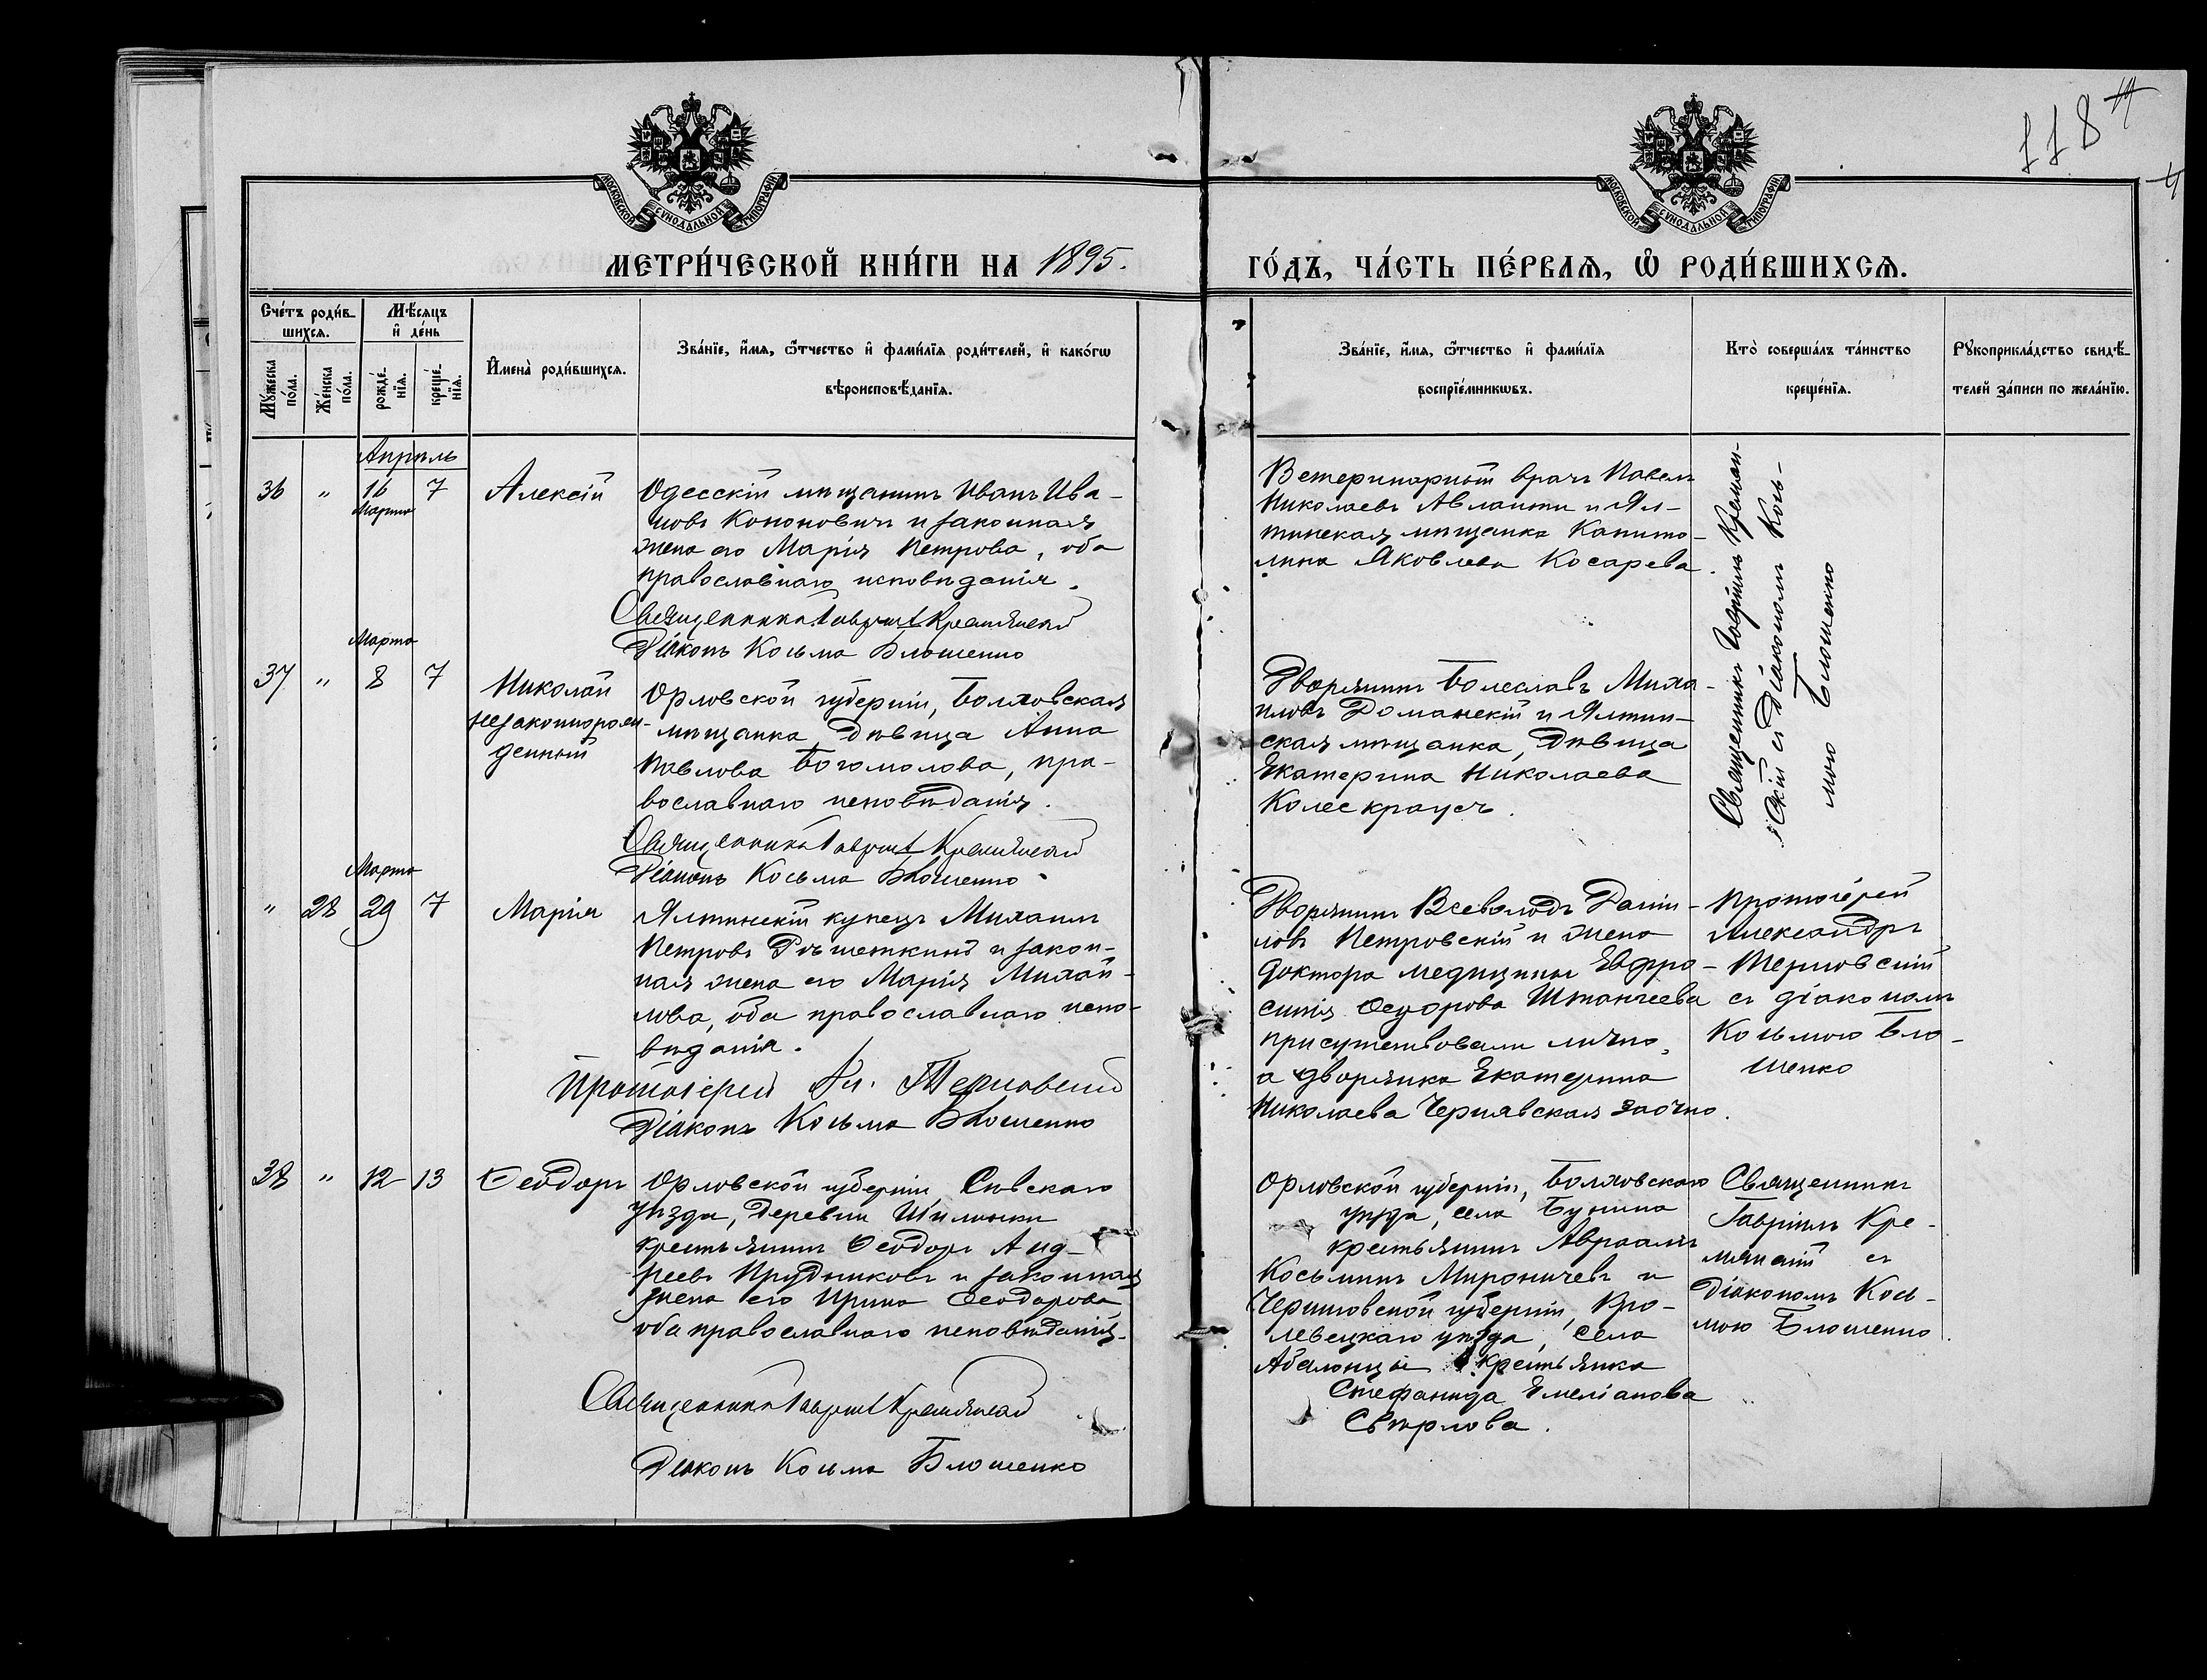 118
МОСКОВСКОЙ СѴНОДАЛЬНОЙ ТИПОГРАФІИ
МОСКОВСКОЙ СѴНОДАЛЬНОЙ ТИПОГРАФІИ
МЕТРИ́ЧЕСКОЙ КНИ́ГИ НА 1895.
ГО́ДЪ, ЧА́СТЬ ПЕ́РВАѦ, Ѡ҆ РОДИ́ВШИХСѦ.
Сче́тъ роди́в-
шихсѧ.
Мѣ́сѧцъ
и҆ де́нь
Мꙋ́жеска по́ла.
Же́нска по́ла.
рожде́-
нїѧ.
креще́-
нїѧ.
И҆мена̀ роди́вшихсѧ.
Зва́нїе, и҆́мѧ, ѻ҆́тчество и҆ фами́лїѧ роди́телей, и҆ како́гѡ
вѣроисповѣ́данїѧ.
Зва́нїе, и҆́мѧ, ѻ҆́тчество и҆ фами́лїѧ
воспрїе́мникѡвъ.
Кто̀ соверша́лъ та́инство
креще́нїѧ.
Рꙋкоприкла́дство свидѣ́-
телей за́писи по жела́нїю.
Апрѣль
36 " 16 7 Алексій
Марта
Одесскій мѣщанинъ Иванъ Ива-
новъ Кононовичъ и законная
жена его Марія Петрова, оба
православнаго исповѣданія.
Священникъ Гавріилъ Кремянскій
Діаконъ Косьма Блошенко
Ветеринарный врачъ Павелъ
Николаевъ Авланти и Ял-
тинская мѣщанка Капито-
лина Яковлева Косарева.
Священникъ Гавріилъ Кремян-
скій съ діакономъ Кось-
мою Блошенко
Марта
37 " 8 7 Николай
незаконнорож-
денный
Орловской губерніи, Болховская
мѣщанка, дѣвица Анна
Павлова Богомолова, пра-
вославнаго исповѣданія.
Священникъ Гавріилъ Кремянскій
Діаконъ Косьма Блошенко
Дворянинъ Болеславъ Миха-
иловъ Романскій и Ялтин-
ская мѣщанка, дѣвица
Екатерина Николаева
Колескраусъ.
Марта
" 28 29 7 Марія
Ялтинскій купецъ Михаилъ
Петровъ Рѣшеткинъ и закон-
ная жена его Марія Михай-
лова, оба православнаго испо-
вѣданія.
Протоіерей Ал. Терновскій
Діаконъ Косьма Блошенко
Дворянинъ Всеволодъ Даніи-
ловъ Петровскій и жена
доктора медицины Евфро-
синія Ѳедорова Штангеева
присутствовали лично,
а дворянка Екатерина
Николаева Чернявская заочно.
Протоіерей
Александръ
Терновскій
съ діакономъ
Косьмою Бло-
шенко
38 " 12 13 Ѳеодоръ
Орловской губерніи, Сѣвскаго
уѣзда, деревни Шилинки
крестьянинъ Ѳеодоръ Анд-
реевъ Прудниковъ и законная
жена его Ирина Ѳеодорова
оба православнаго исповѣданія.
Священникъ Гавріилъ Кремянскій
Діаконъ Косьма Блошенко
Орловской губерніи, Болховскаго
уѣзда, села Бунина
крестьянинъ Авраамъ
Косьминъ Мироничевъ и
Черниговской губерніи, Кро-
левецкаго уѣзда, села
крестьянка
Стефанида Емеліанова
Свѣрлова.
Священникъ
Гавріилъ Кре-
мянскій съ
діакономъ Кось-
мою Блошенко.